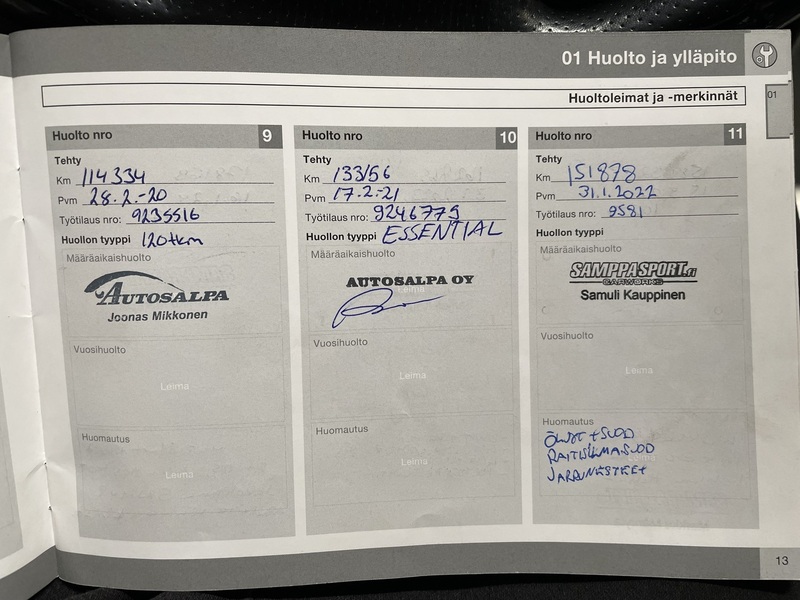 01 Huolto ja ylläpito
01
Huoltoleimat ja -merkinnät
Huolto nro 9
Tehty
Km 114334
Pvm 28.2.-20
Työtilaus nro: 9235516
Huollon tyyppi 120tkm
Määräaikaishuolto
AUTOSALPA
Joonas Mikkonen
Vuosihuolto
Leima
Huomautus
Leima
Huolto nro 10
Tehty
Km 133156
Pvm 17.2-21
Työtilaus nro: 9246775
Huollon tyyppi ESSENTIAL
Määräaikaishuolto
AUTOSALPA OY
Leima
Vuosihuolto
Leima
Huomautus
Leima
Huolto nro 11
Tehty
Km 151878
Pvm 31.1.2022
Työtilaus nro: 9581
Huollon tyyppi
Määräaikaishuolto
SAMPPASPORT.fi
CARWORKS
Samuli Kauppinen
Vuosihuolto
Leima
Huomautus
ÖLJYT + SUOD
RAITISILMASUOD
JARRUNESTEET
13